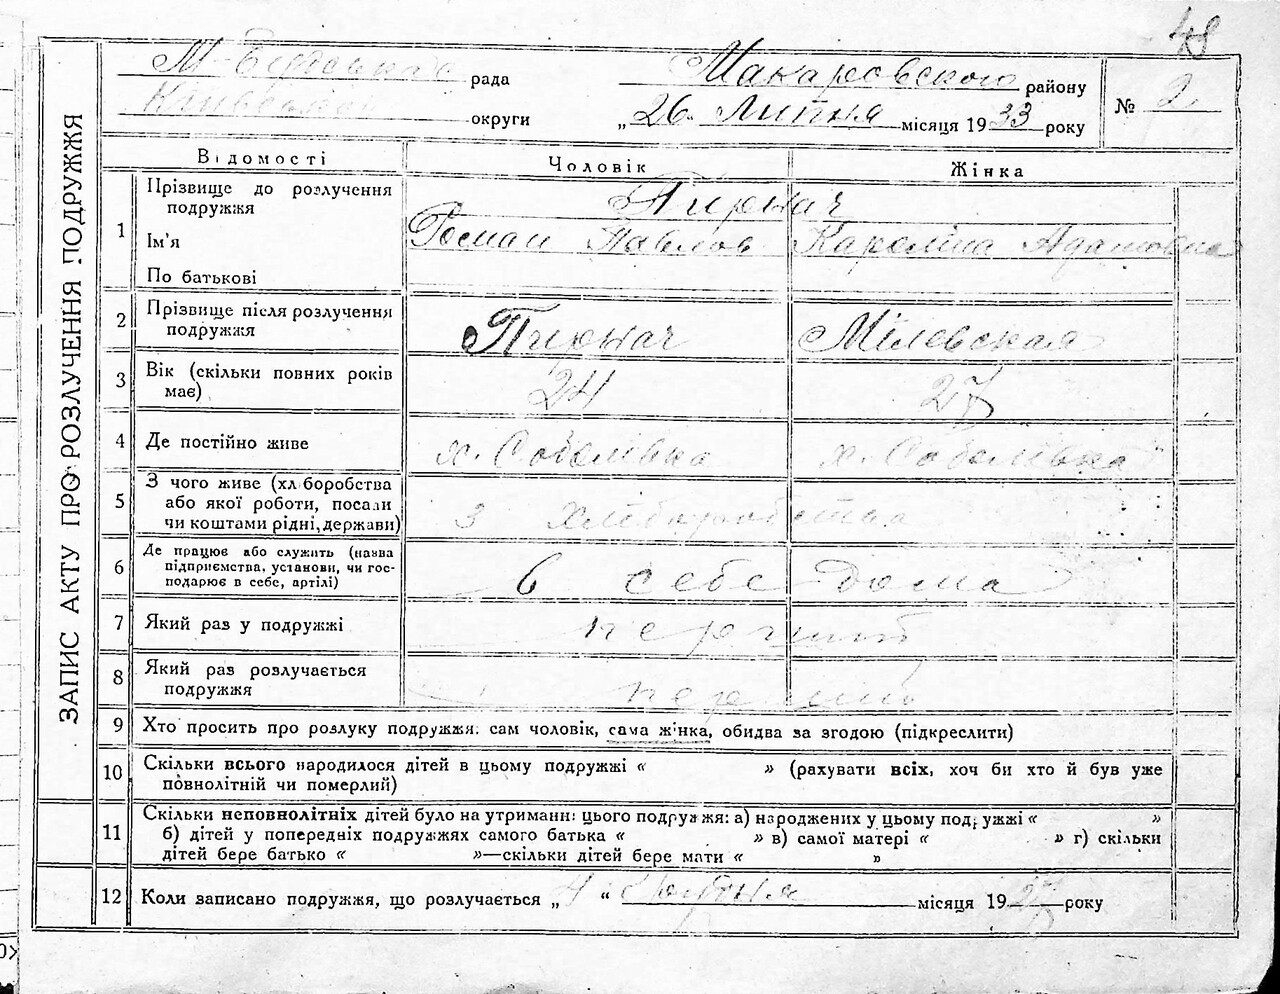 48
М-Бердовська рада Макаровского району
Київської округи „26“ Липня місяця 1933 року
№ 2
ЗАПИС АКТУ ПРО РОЗЛУЧЕННЯ ПОДРУЖЖЯ
Відомості Чоловік Жінка
1 Прізвище до розлучення подружжя Пирнач
Ім'я Роман Павлов Кароліна Адамовна
По батькові
2 Прізвище після розлучення
подружжя Пирнач Мілевская
3 Вік (скільки повних років
має) 24 27
4 Де постійно живе х. Соболівка х. Соболівка
5 З чого живе (хліборобства
або якої роботи, посади
чи коштами рідні, держави) З хліборобства
6 Де працює або служить (назва
підприємства, установи, чи гос-
подарює в себе, артілі) в себе дома
7 Який раз у подружжі перший
8 Який раз розлучається
подружжя перший
9 Хто просить про розлуку подружжя: сам чоловік, сама жінка, обидва за згодою (підкреслити)
10 Скільки всього народилося дітей в цьому подружжі « » (рахувати всіх, хоч би хто й був уже
повнолітній чи померлий)
11 Скільки неповнолітніх дітей було на утриманні цього подружжя: а) народжених у цьому подружжі « »
б) дітей у попередніх подружжях самого батька « » в) самої матері « » г) скільки
дітей бере батько « »—скільки дітей бере мати « »
12 Коли записано подружжя, що розлучається „4“ місяця 1927 року